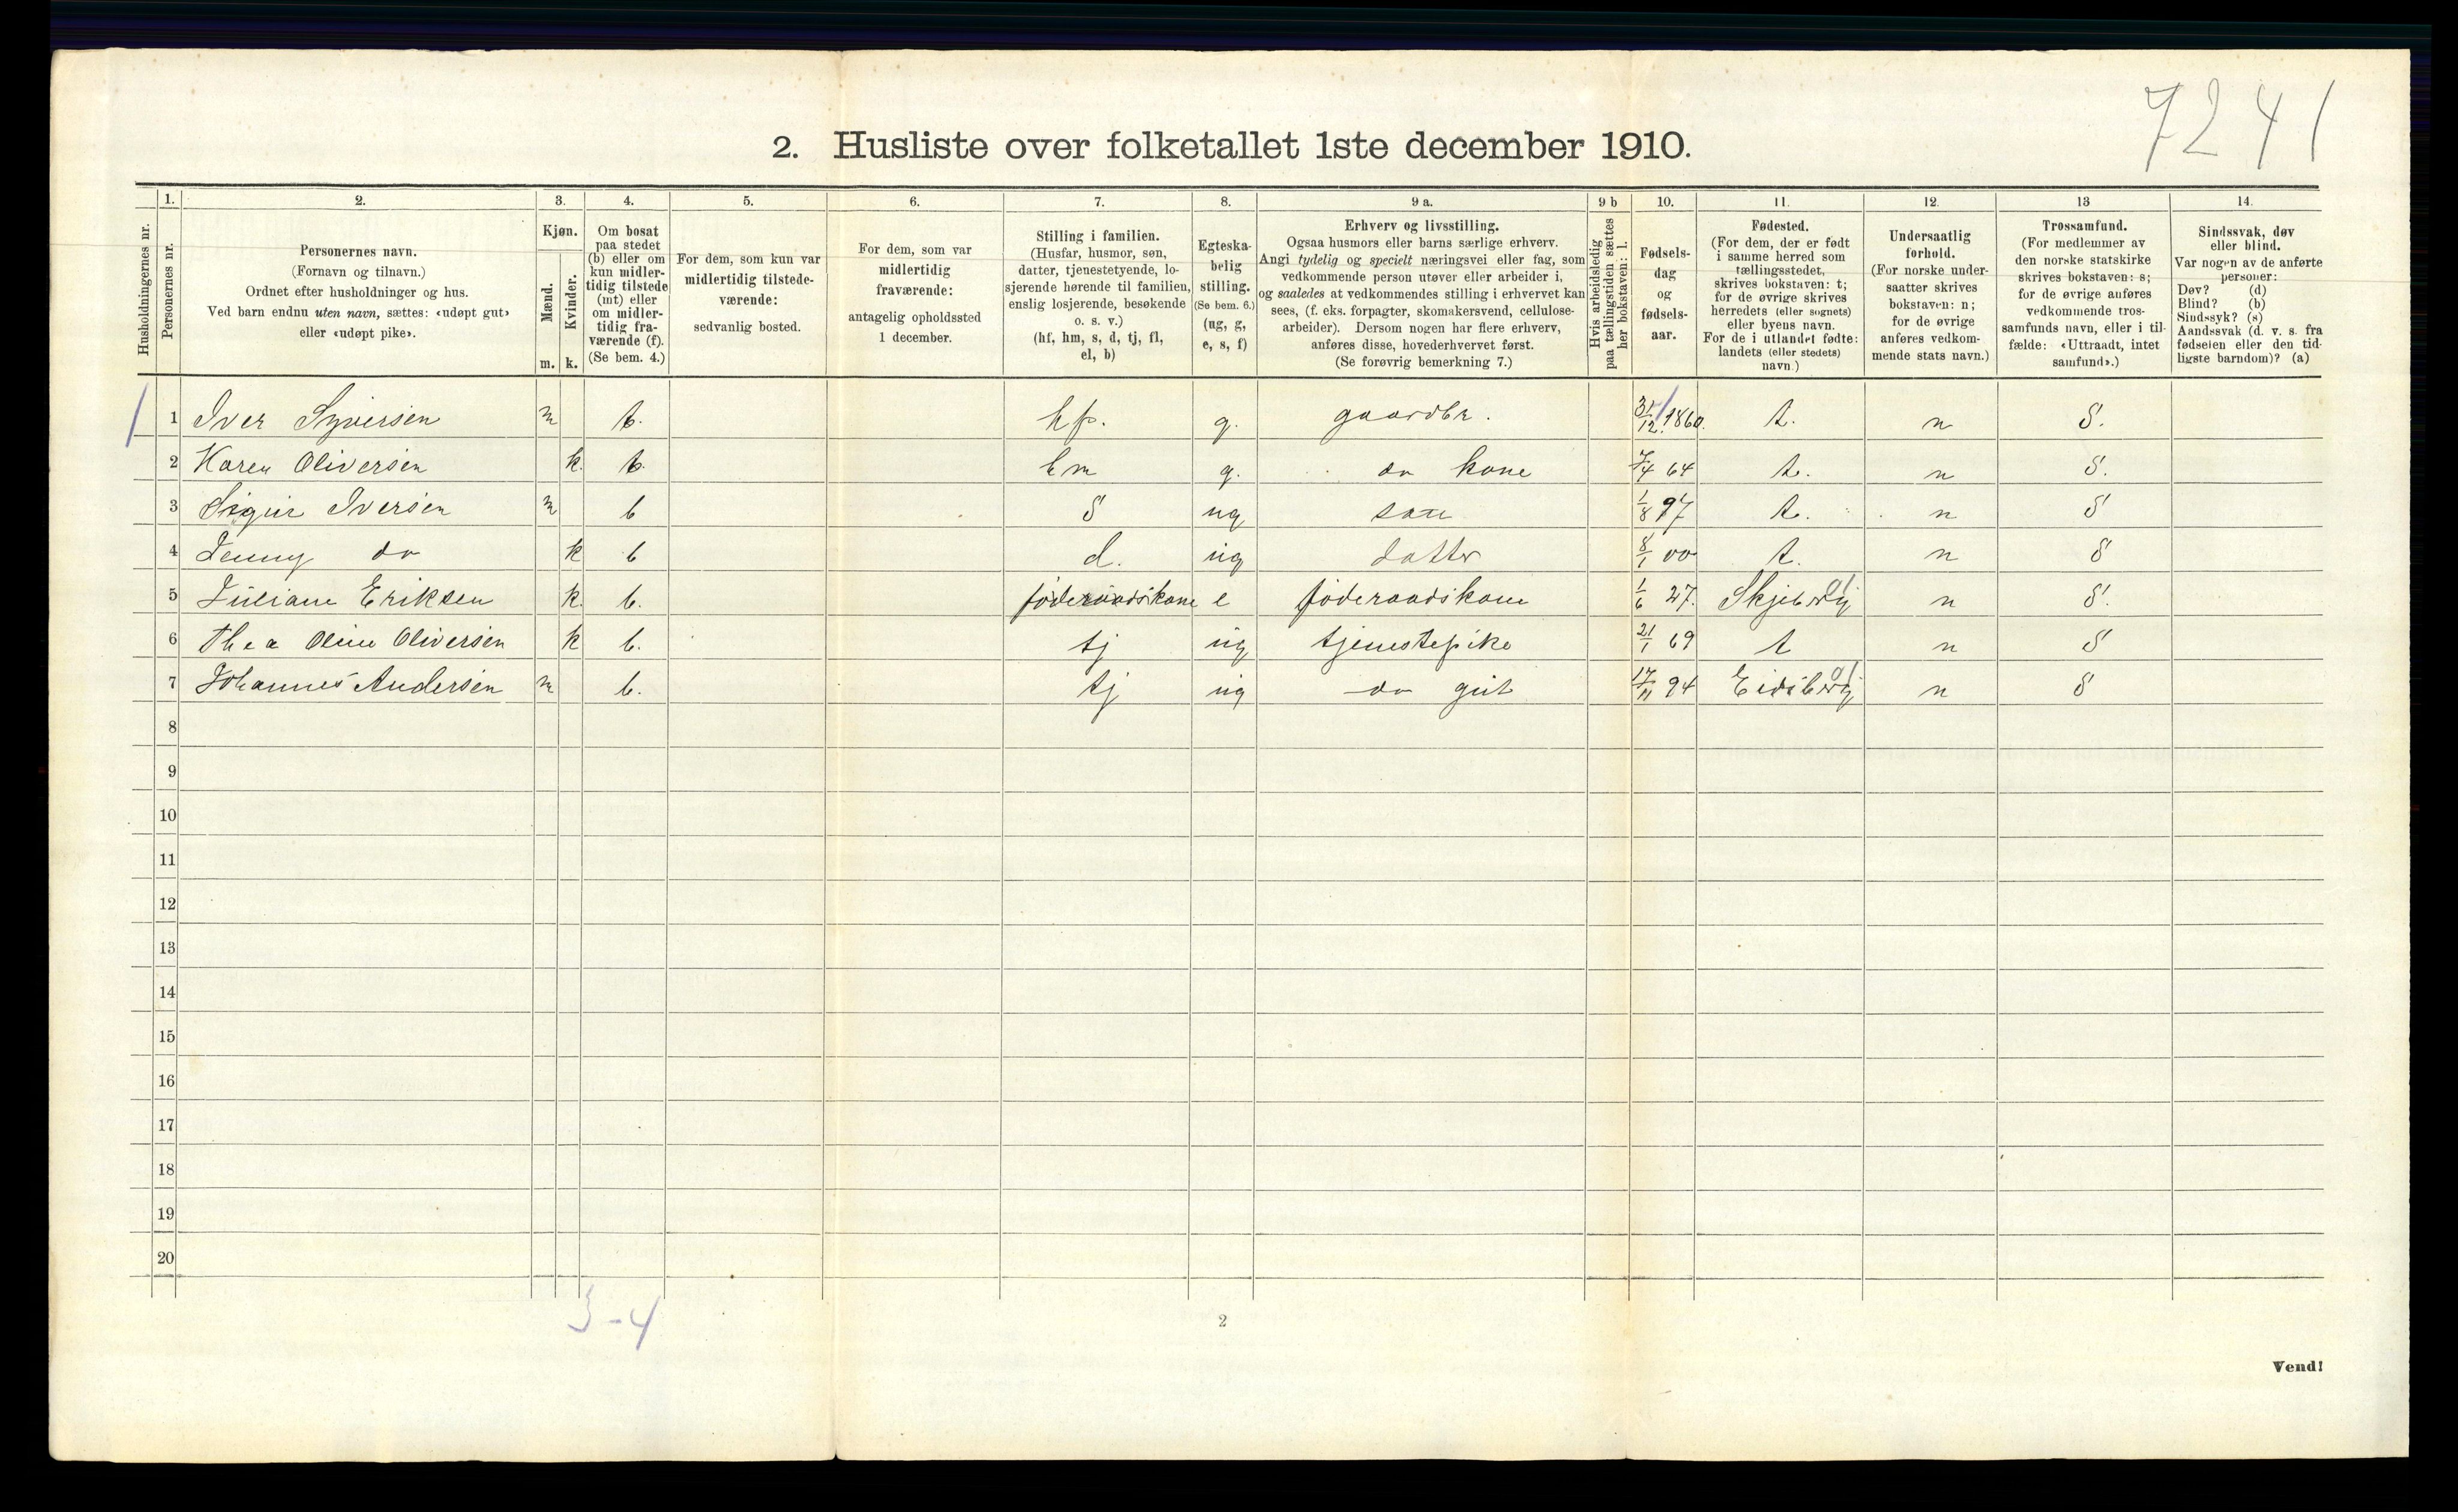 7241
2. Husliste over folketallet 1ste december 1910.
Husholdningernes nr.
1.
Personernes nr.
2.
Personernes navn.
(Fornavn og tilnavn.)
Ordnet efter husholdninger og hus.
Ved barn endnu uten navn, sættes: «udøpt gut»
eller «udøpt pike».
3.
Kjøn.
Mænd.
Kvinder.
m. k.
4.
Om bosat
paa stedet
(b) eller om
kun midler-
tidig tilstede
(mt) eller
om midler-
tidig fra-
værende (f).
(Se bem. 4.)
5.
For dem, som kun var
midlertidig tilstede-
værende:
sedvanlig bosted.
6.
For dem, som var
midlertidig
fraværende:
antagelig opholdssted
1 december.
7.
Stilling i familien.
(Husfar, husmor, søn,
datter, tjenestetyende, lo-
sjerende hørende til familien,
enslig losjerende, besøkende
o. s. v.)
(hf, hm, s, d, tj, fl,
el, b)
8.
Egteska-
belig
stilling.
(Se bem. 6.)
(ug, g,
e, s, f)
9 a.
Erhverv og livsstilling.
Ogsaa husmors eller barns særlige erhverv.
Angi tydelig og specielt næringsvei eller fag, som
vedkommende person utøver eller arbeider i,
og saaledes at vedkommendes stilling i erhvervet kan
sees, (f. eks. forpagter, skomakersvend, cellulose-
arbeider). Dersom nogen har flere erhverv,
anføres disse, hovederhvervet først.
(Se forøvrig bemerkning 7.)
9 b
Hvis arbeidsledig
paa tællingstiden sættes
her bokstaven: l.
10.
Fødsels-
dag
og
fødsels-
aar.
11.
Fødested.
(For dem, der er født
i samme herred som
tællingsstedet,
skrives bokstaven: t;
for de øvrige skrives
herredets (eller sognets)
eller byens navn.
For de i utlandet fødte:
landets (eller stedets)
navn.)
12.
Undersaatlig
forhold.
(For norske under-
saatter skrives
bokstaven: n;
for de øvrige
anføres vedkom-
mende stats navn.)
13
Trossamfund.
(For medlemmer av
den norske statskirke
skrives bokstaven: s;
for de øvrige anføres
vedkommende tros-
samfunds navn, eller i til-
fælde: «Uttraadt, intet
samfund».)
14.
Sindssvak, døv
eller blind.
Var nogen av de anførte
personer:
Døv? (d)
Blind? (b)
Sindssyk? (s)
Aandssvak (d. v. s. fra
fødselen eller den tid-
ligste barndom)? (a)
1 1 Iver Syversen m b. hf. g. gaardbr. 31/12 1860. t. n S.
2 Karen Oliversen k. b. hm g. do kone 7/4 64 t. n S.
3 Sigur Iversen m b S ug søn 1/8 97 t. n S
4 Jenny do k b d. ug datter 8/1 00 t. n S
5 Juliane Eriksen k. b. føderaadskone e føderaadskone 1/6 27. Skjeberg 01 n S.
6 Thea Oline Oliversen k b. tj ug tjenestepike 21/1 69 t n S
7 Johannes Andersen m b. tj ug do gut 17/11 94 Eidsberg 01 n S
8
9
10
11
12
13
14
15
16
17
18
19
20
3-4
2
Vend!